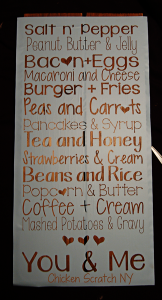 Salt n' Pepper
Peanut Butter & Jelly
Bacon+Eggs
Macaroni and Cheese
Burger + Fries
Peas and Carrots
Pancakes & Syrup
Tea and Honey
Strawberries & Cream
Beans and Rice
Popcorn & Butter
Coffee + Cream
Mashed Potatoes & Gravy
You & Me
Chicken Scratch NY